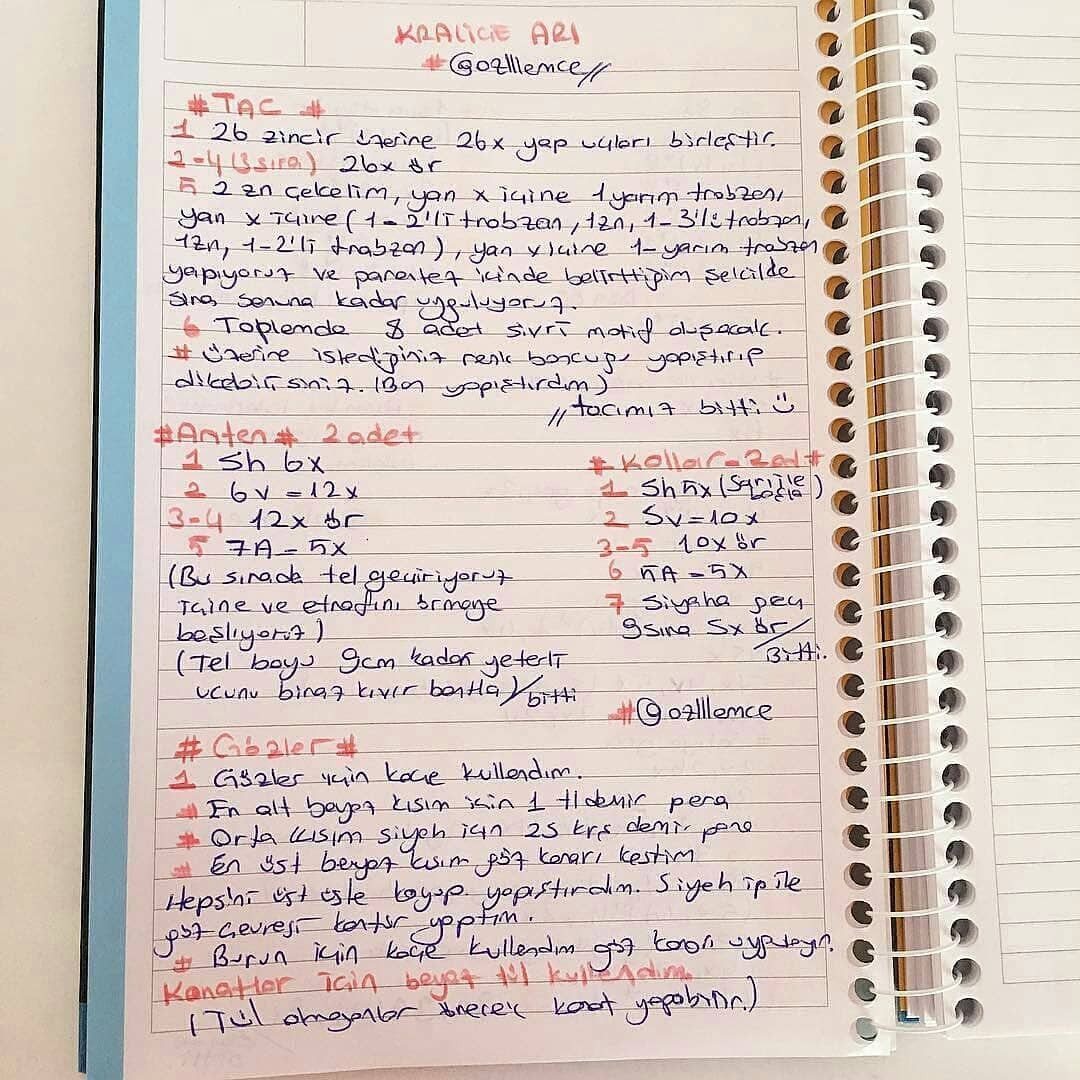 KRALİÇE ARI
# @ozlllemce //
# TAC #
1 26 zincir üzerine 26x yap uçları birleştir.
2-4 (3 sıra) 26x ör
5 2 zn çekelim, yan x içine 1 yarım trabzan,
yan x içine (1-2'li trabzan, 1zn, 1-3'lü trabzan,
1zn, 1-2'li trabzan), yan x içine 1-yarım trabzan
yapıyoruz ve parantez içinde belirttiğim şekilde
sıra sonuna kadar uyguluyoruz.
6 Toplamda 8 adet sivri motif oluşacak.
# Üzerine istediğiniz renk boncuğu yapıştırıp
dikebilirsiniz. (Ben yapıştırdım)
// tacımız bitti ü
#Anten# 2 adet
1 Sh 6x
2 6v = 12x
3-4 12x ör
5 7A - 5x
(Bu sırada tel geçiriyoruz
içine ve etrafını örmeye
başlıyoruz)
(Tel boyu 9cm kadar yeterli
ucunu biraz kıvır bantla) / bitti
# Kollar - 2ad #
1 Sh 5x (Sarı ile başla)
2 5v=10x
3-5 10x ör
6 5A - 5x
7 Siyaha geç
9 sıra 5x ör /
Bitti.
# @ozlllemce
# Gözler #
1 Gözler için keçe kullandım.
# En alt beyaz kısım için 1 tl demir para
# Orta kısım siyah için 25 krş demir para
# En üst beyaz kısım göz kararı kestim
Hepsini üst üste koyup yapıştırdım. Siyah ip ile
göz çevresi kontür yaptım.
# Burun için keçe kullandım göz kararı uygulayın.
Kanatlar için beyaz tül kullandım.
(Tül olmayanlar örerek kanat yapabilir.)